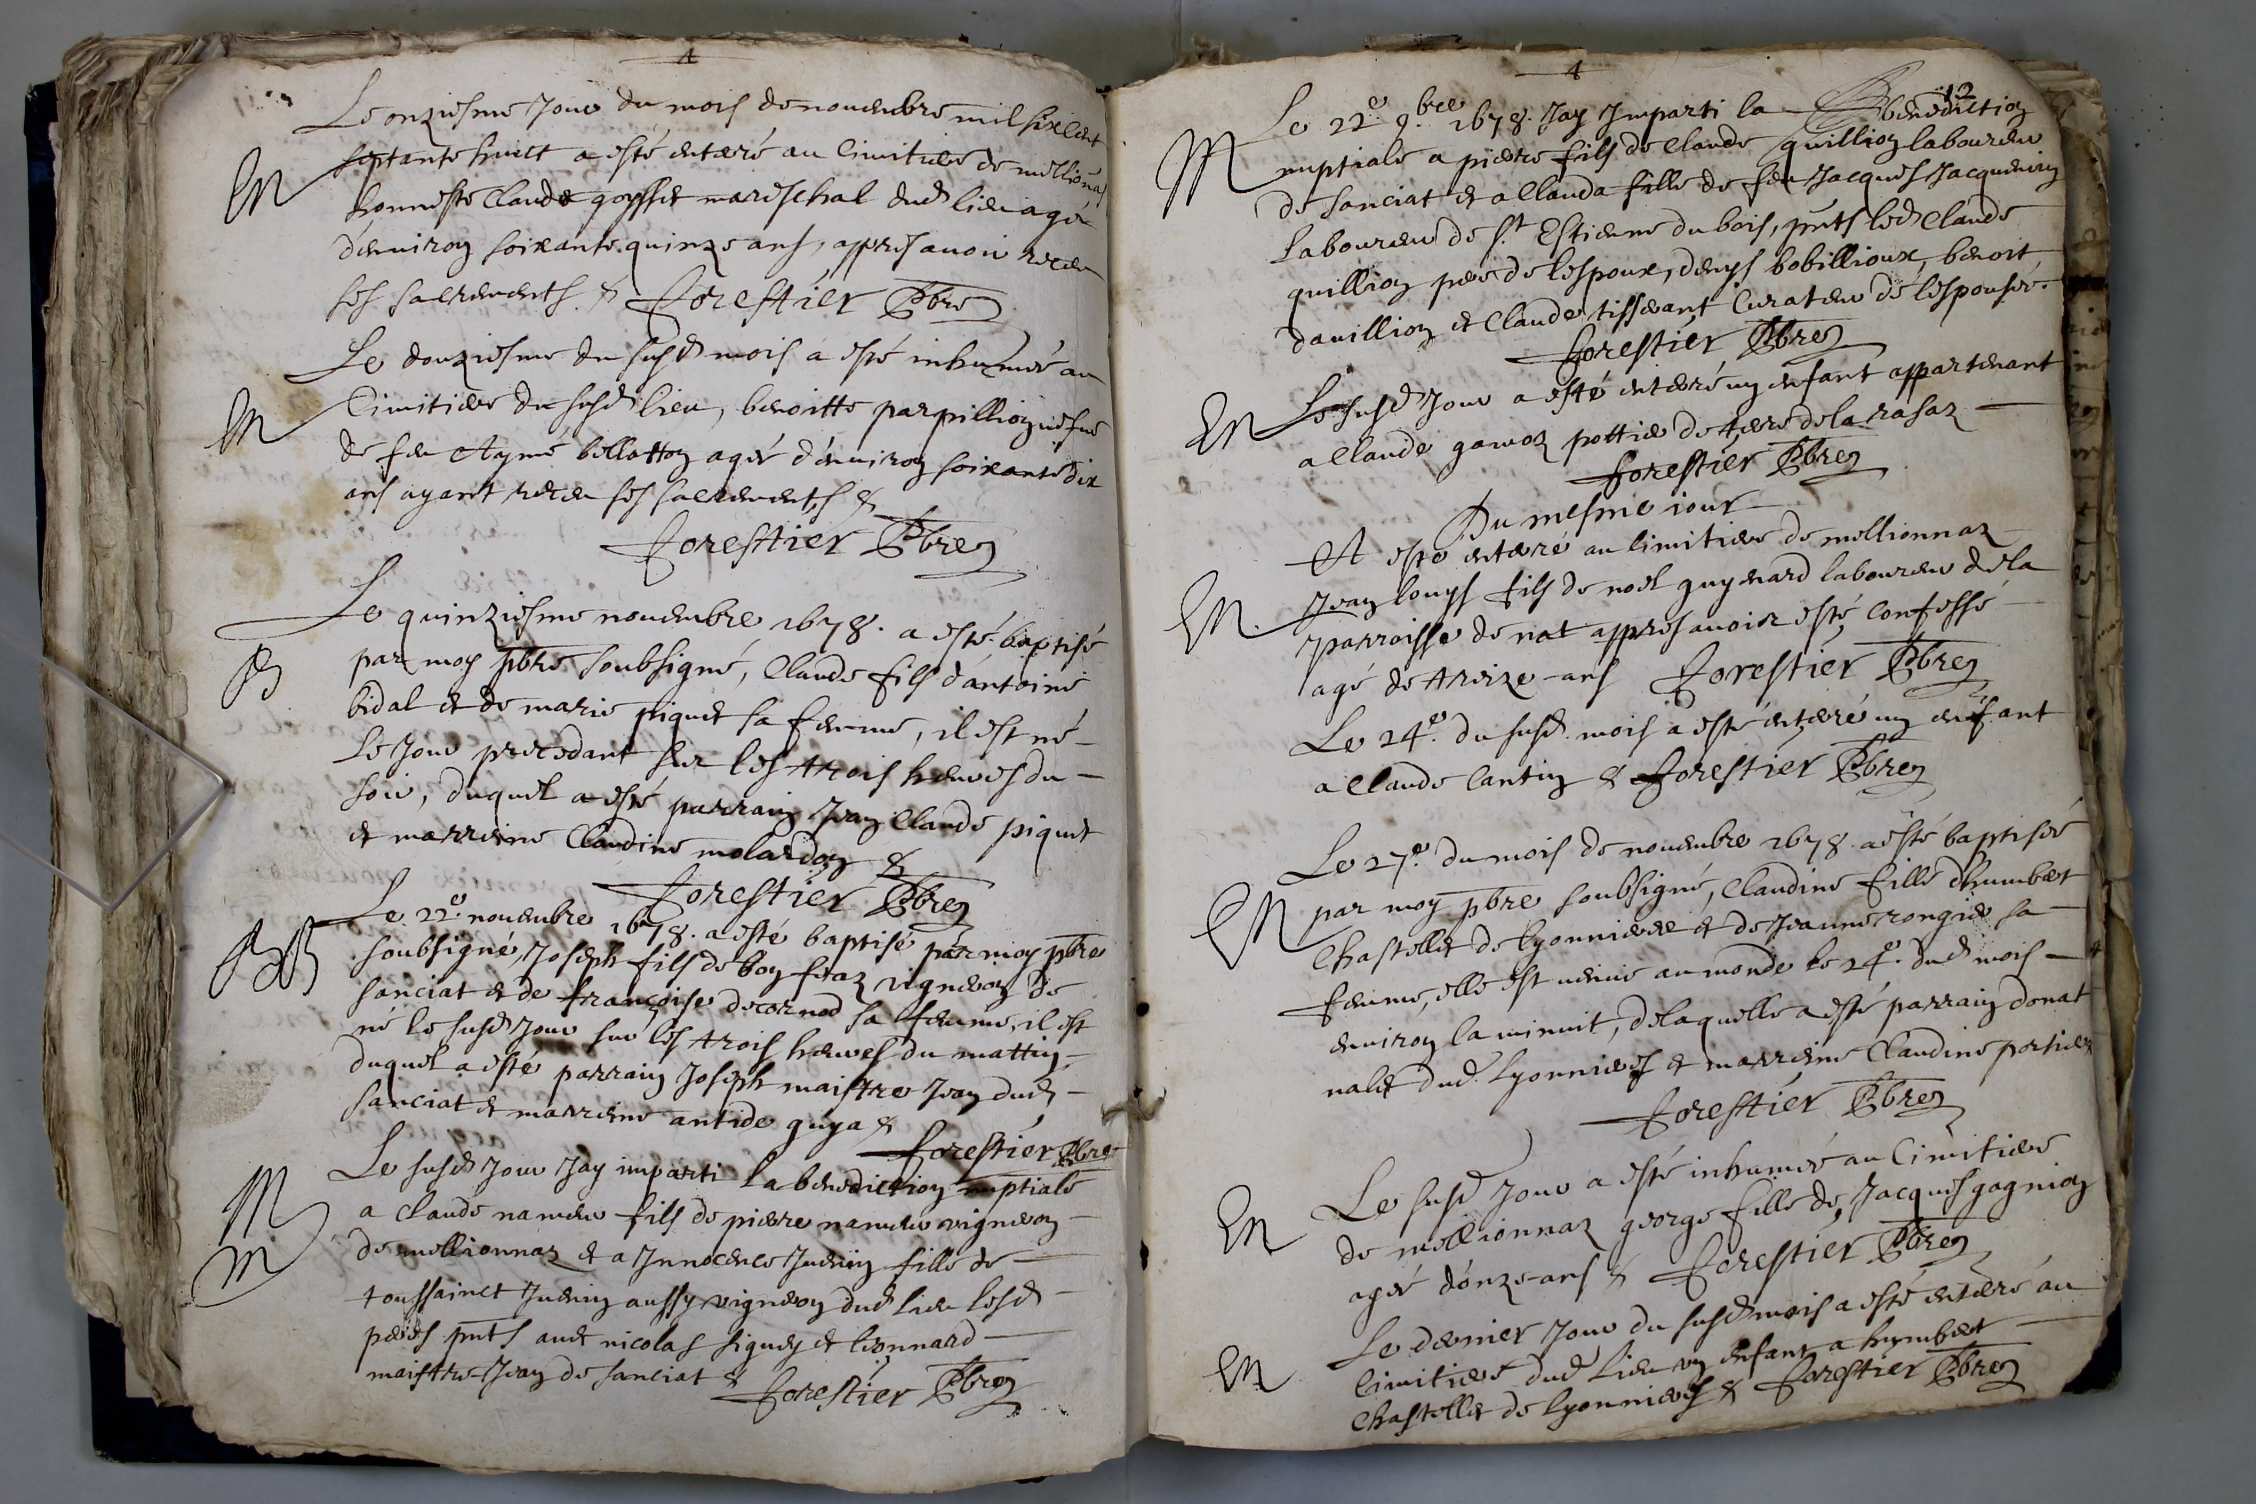 4
Le onziesme Jour du mois de novembre mil six cent
septante huict a esté enterré au Cimitiere de mellionaz
En
honneste Claude goysset mareschal dud lieu agé
d'environ soixante quinze ans, appres avoir receu
ses sacrements. & Forestier Pbre
Le douziesme du susd mois a esté inhumée au
En
Cimitiere du susd lieu, benoitte parpillion vefue
de feu Aymé bellatton agée d'environ soixante dix
ans ayant receu ses sacrements &
Forestier Pbre
Le quinziesme novembre 1678. a esté baptisé
B
par moy pbre soubsigné, Claude fils d'antoine
bidal et de marie piquet sa femme, il est né
le Jour precedant sur les trois heures du
soir, duquel a esté parrain Jean Claude piquet
et marreine Claudine molardon &
Forestier Pbre
Le 22e. novembre 1678. a esté baptisé par moy pbre
B
soubsigné, Joseph fils de bon feaz vigneron de
sanciat et de françoise decornod sa femme, il est
né le susd Jour sur les trois heures du mattin
duquel a esté parrain Joseph maistre Jean dud
sanciat et marreine antide guya &
Forestier Pbre
Le susd Jour Jay imparti la benediction nuptiale
M
a Claude nameu fils de pierre nameu vigneron
de mellionnaz et a Innocence Juenin fille de
M
toussainct Juenin aussy vigneron dud lieu lesd
peres pnts avec nicolas et leonnard
maistre Jean de sanciat &
Forestier Pbre
4
12
Le 22e. 9.bre 1678. Jay Imparti la benediction
M
nuptiale a pierre fils de Claude quillion laboureur
de sanciat et a Clauda fille de feu Jacques Jacquemin
laboureur de St Estienne du bois, pnts led Claude
quillion pere de lespoux, denys bobillioux, benoit
davillion et Claude tisserant Curateur de lespousée.
Forestier Pbre
Le susd Jour a esté enterré un enfant appartenant
En
a Claude gavoz pottier de terre de la rasaz
Forestier Pbre
Du mesme iour
A esté enterré au Cimitiere de mellionnaz
En
Jean louys fils de noel guyenard laboureur de la
parroisse de nat appres avoir esté confessé
agé de treize ans Forestier Pbre
Le 24e. du susd. mois a esté enterré un enfant
a Claude Cantin & Forestier Pbre
Le 27e. du mois de novembre 1678. a esté baptisée
En
par moy pbre soubsigné, Claudine fille d'humbert
Chastellet de lyonnieres et de Jeanne rongier sa
femme, elle est venue au monde le 24e. dud mois
environ la minuit, de laquelle a esté parrain donat
nalet dud. lyonnieres et marreine Claudine portier
Forestier Pbre
Le susd Jour a esté inhumée au Cimitiere
En
de mellionnaz george fille de Jacques gagnion
agée d'onze ans & Forestier Pbre
Le dernier Jour du susd mois a esté enterré au
En
Cimitiere dud lieu un enfant a humbert
Chastellet de lyonnieres & Forestier Pbre